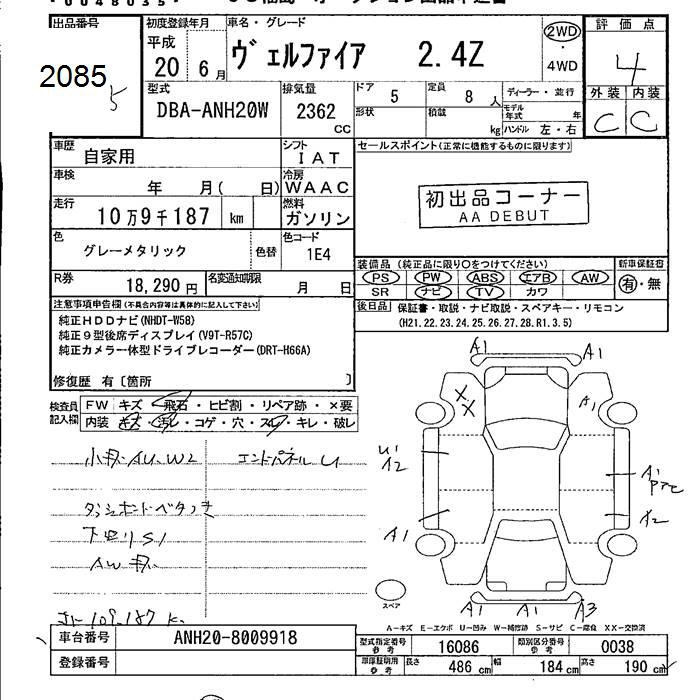 出品番号
2085
5
初度登録年月
平成
20 年 6 月
車名・グレード
ヴェルファイア 2.4Z
2WD
・
4WD
評価点
4
外装 内装
C C
型式
DBA-ANH20W
排気量
2362
CC
ドア
5
定員
8 人
形状
積載
kg
ディーラー・並行
モデル年式 年
ハンドル 左・右
車歴
自家用
シフト
IAT
車検
年 月( 日)
冷房
WAAC
走行
10万9千187 km
燃料
ガソリン
色
グレーメタリック
色替
色コード
1E4
R券
18,290 円
名変通知期限
月 日
セールスポイント(正常に機能するものに限ります)
初出品コーナー
AA DEBUT
装備品 (純正品に限り○をつけてください)
PS PW ABS エアB AW
SR ナビ TV カワ
新車保証書
有・無
後日品
保証書・取説・ナビ取説・スペアキー・リモコン
(H21.22.23.24.25.26.27.28.R1.3.5)
注意事項申告欄(不具合内容等は具体的に記入して下さい)
純正HDDナビ(NHDT-W58)
純正9型後席ディスプレイ(V9T-R57C)
純正カメラ一体型ドライブレコーダー(DRT-H66A)
修復歴 有〔箇所 〕
検査員
記入欄
FW キズ・飛石・ヒビ割・リペア跡・×要
内装 キズ・汚レ・コゲ・穴・スレ・キレ・破レ
AU W2 エンドパネル U
ダッシュボードベタつき
下回リS1
AW
109.187 K
A1 A1
XX A1
U1
A2
A1
A1
A2
A1 A1 A3
スペア
A-キズ E-エクボ U-凹み W-補修跡 S-サビ C-腐食 XX-交換済
車台番号
ANH20-8009918
登録番号
型式指定番号
参考
16086
類別区分番号
参考
0038
車庫証明用
参考
長さ 486 cm 幅 184 cm 高さ 190 cm